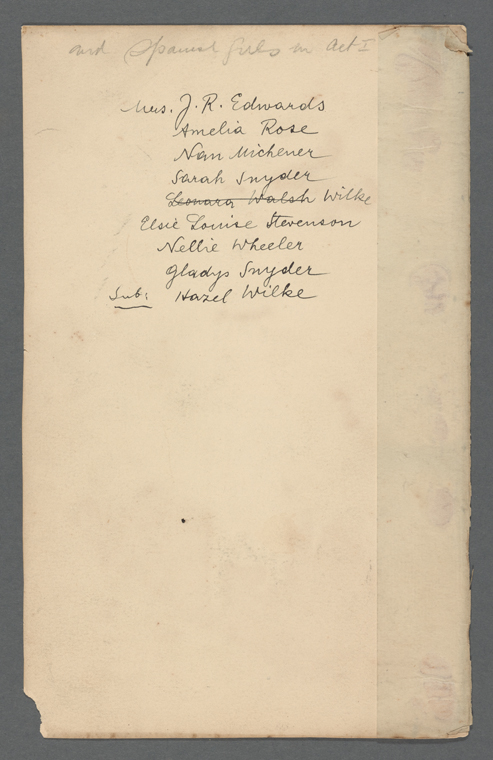 and Spanish girls in Act I
Mrs. J. R. Edwards
Amelia Rose
Nan Michener
Sarah Snyder
Leonara Walsh Wilke
Elsie Louise Stevenson
Nellie Wheeler
Gladys Snyder
Sub: Hazel Wilke